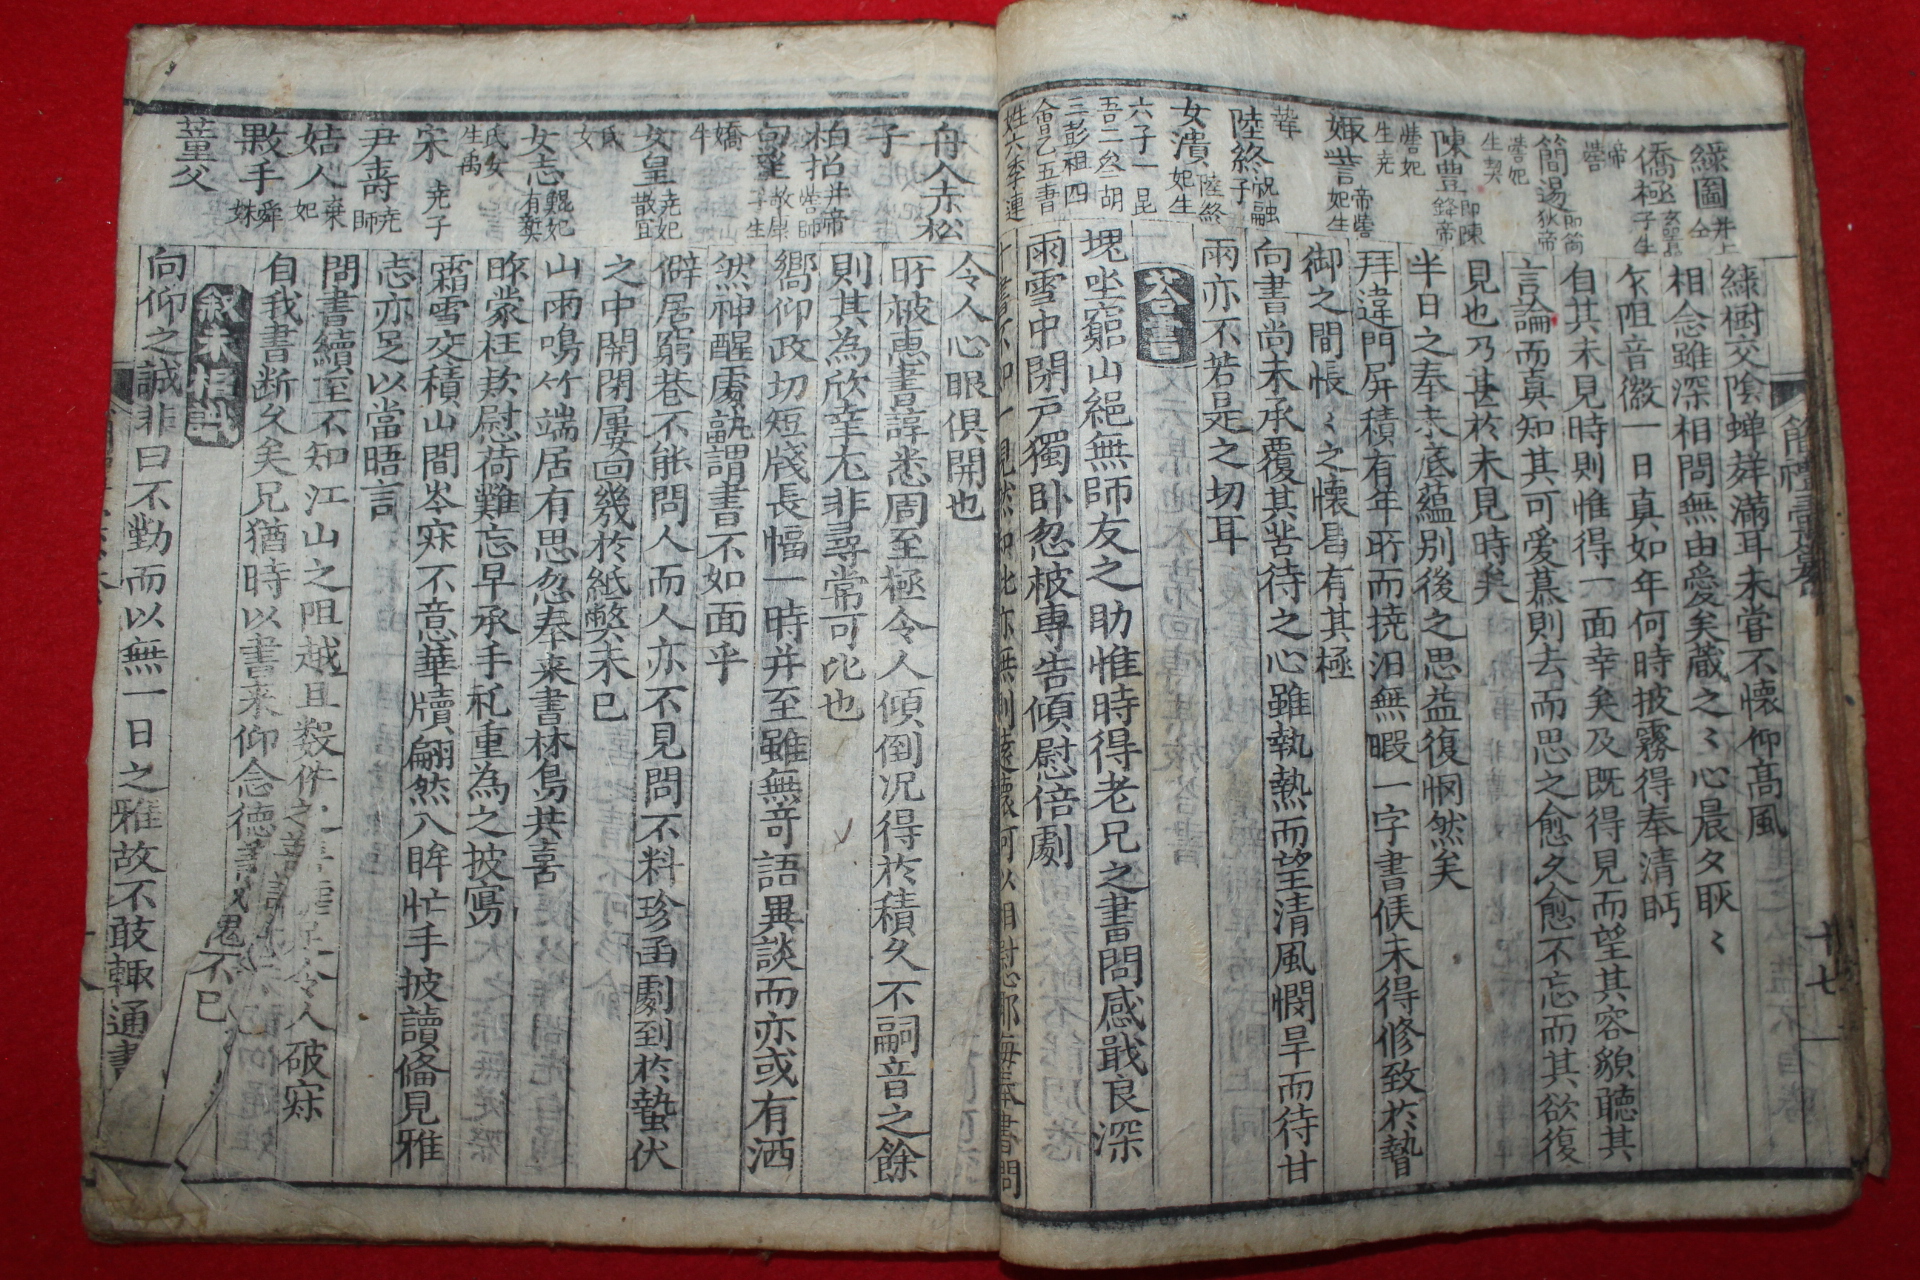 緑樹交陰蟬聲滿耳未嘗不懷仰高風
相念雖深相問無由愛矣藏之〻心晨夕耿〻
乍阻音徽一日真如年何時披霧得奉清眄
自其未見時則惟得一面幸矣及既得見而望其容貌聽其
言論而真知其可愛慕則去而思之愈久愈不忘而其欲復
見也乃甚於未見時矣
半日之奉未底蘊別後之思益復惘然矣
拜違門屏積有年所而撓汨無暇一字書候未得修致於贄
御之間悵〻之懷曷有其極
向書尚未承覆其苦待之心雖執熱而望清風憫旱而待甘
雨亦不若是之切耳
答書
塊坐窮山絕無師友之助惟時得老兄之書問感戢良深
雨雪中閉戶獨卧忽被專告傾慰倍劇
令人心眼俱開也
所被惠書諄悉周至極令人傾倒況得於積久不嗣音之餘
則其為欣幸尤非尋常可比也
嚮仰政切短牋長幅一時并至雖無奇語異談而亦或有洒
然神醒處孰謂書不如面乎
僻居窮巷不能問人而人亦不見問不料珍函劇到於蟄伏
之中開閉屢回幾於紙弊未已
山雨鳴竹端居有思忽奉来書林鳥共喜
昨蒙枉款慰荷難忘早承手札重為之披寫
霜雪交積山間岑寂不意華牘翩然入眸忙手披讀備見雅
志亦足以當晤言
問書續至不知江山之阻越且数件之令人破寂
自我書断久矣兄猶時以書来仰念德愧不已
叙未相識
向仰之誠非曰不勤而以無一日之雅故不敢輙通書
綠圖
僑極 玄囂子生
簡湯
陳豊
娵訾
陸終 祝融子
女潰 陸終妃生
六子一昆
吾二叅胡
三彭祖四
會乙五書
姓六季連
舟人赤松
子
柏招
句望
女皇 堯妃
女志 鯀妃
宋 堯子
尹壽 堯師
姞人 棄妃
敤手 舜妹
董父
廿七